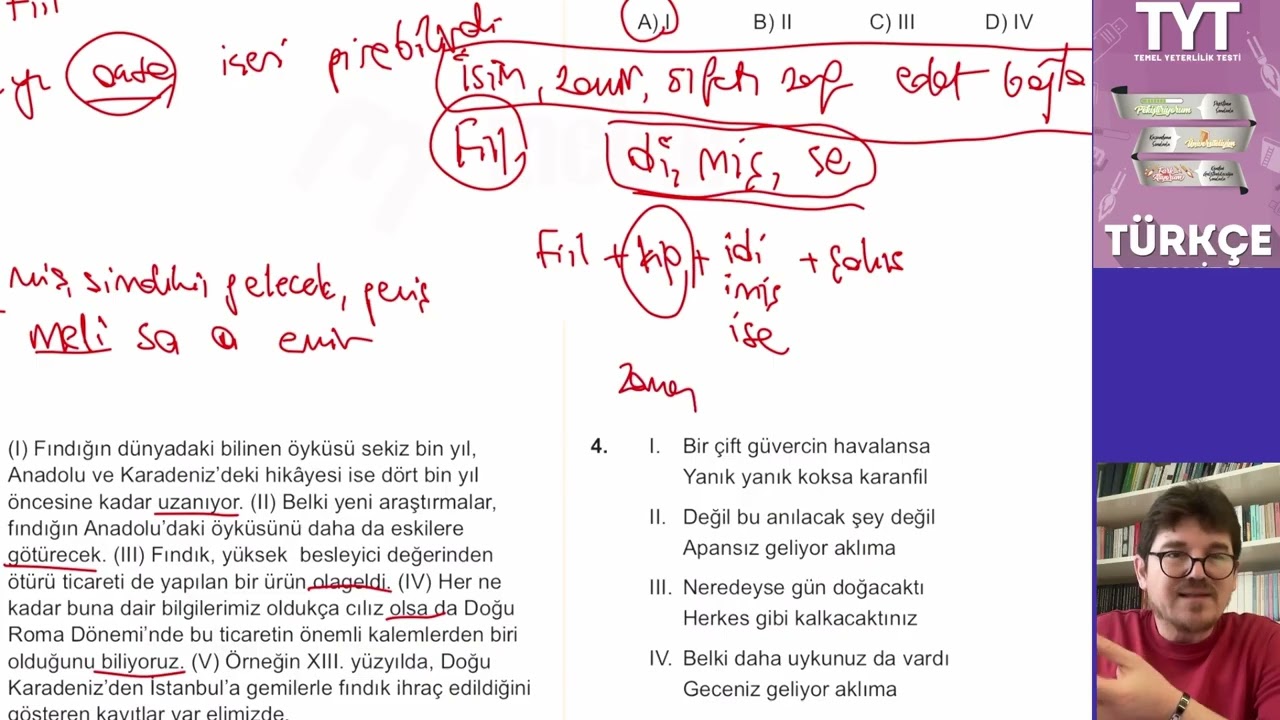 Fiil
A) I B) II C) III D) IV
sade isen girebilirdi
isim, zamir, sıfat, zarf edat bağla
Fiil, di, miş, se
Fiil + kip + idi + şahıs
imiş
ise
miş, şimdiki gelecek, geniş
meli sa a emir
zaman
(I) Fındığın dünyadaki bilinen öyküsü sekiz bin yıl,
Anadolu ve Karadeniz’deki hikâyesi ise dört bin yıl
öncesine kadar uzanıyor. (II) Belki yeni araştırmalar,
fındığın Anadolu’daki öyküsünü daha da eskilere
götürecek. (III) Fındık, yüksek besleyici değerinden
ötürü ticareti de yapılan bir ürün olageldi. (IV) Her ne
kadar buna dair bilgilerimiz oldukça cılız olsa da Doğu
Roma Dönemi’nde bu ticaretin önemli kalemlerden biri
olduğunu biliyoruz. (V) Örneğin XIII. yüzyılda, Doğu
Karadeniz’den İstanbul’a gemilerle fındık ihraç edildiğini
gösteren kayıtlar var elimizde.
4. I. Bir çift güvercin havalansa
Yanık yanık koksa karanfil
II. Değil bu anılacak şey değil
Apansız geliyor aklıma
III. Neredeyse gün doğacaktı
Herkes gibi kalkacaktınız
IV. Belki daha uykunuz da vardı
Geceniz geliyor aklıma
TYT
TEMEL YETERLİLİK TESTİ
Pekiştiriyorum
Üniversiteliyim
TÜRKÇE